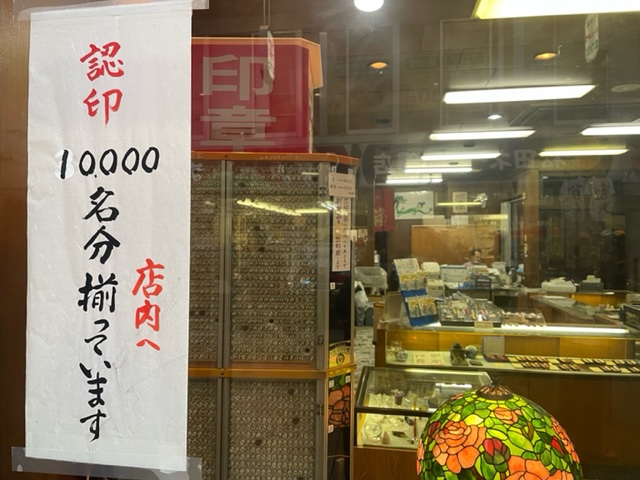 認印
10.000名分揃っています
店内へ
印章